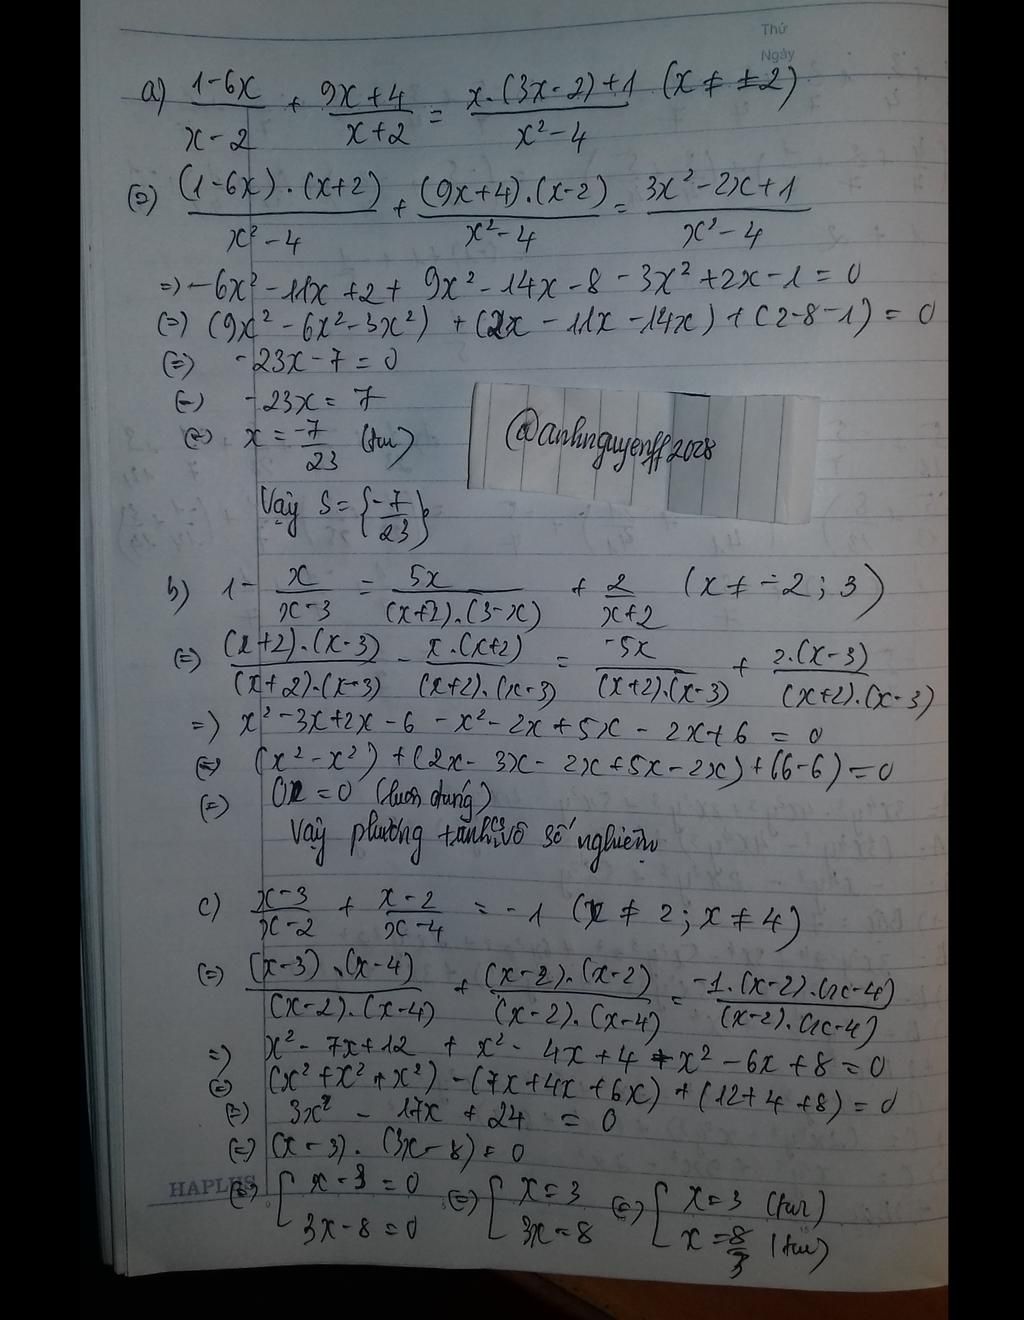 Thứ
Ngày
a) (1-6x)/(x-2) + (9x+4)/(x+2) = (x.(3x-2)+1)/(x²-4) (x ≠ ±2)
(=) ((1-6x).(x+2))/(x²-4) + ((9x+4).(x-2))/(x²-4) = (3x²-2x+1)/(x²-4)
=) -6x²-11x+2+9x²-14x-8-3x²+2x-1=0
(=) (9x²-6x²-3x²)+(2x-11x-14x)+(2-8-1)=0
(=) -23x-7=0
(=) -23x=7
(=) x=-7/23 (tm)
@anhnguyenff2028
Vậy S={-7/23}
b) 1-x/(x-3) = 5x/((x+2).(3-x)) + 2/(x+2) (x ≠ -2; 3)
(=) ((x+2).(x-3))/((x+2).(x-3)) - (x.(x+2))/((x+2).(x-3)) = -5x/((x+2).(x-3)) + (2.(x-3))/((x+2).(x-3))
=) x²-3x+2x-6-x²-2x+5x-2x+6=0
(=) (x²-x²)+(2x-3x-2x+5x-2x)+(6-6)=0
(=) 0x=0 (luôn đúng)
Vậy phương trình có vô số nghiệm
c) (x-3)/(x-2) + (x-2)/(x-4) = -1 (x ≠ 2; x ≠ 4)
(=) ((x-3).(x-4))/((x-2).(x-4)) + ((x-2).(x-2))/((x-2).(x-4)) = (-1.(x-2).(x-4))/((x-2).(x-4))
=) x²-7x+12+x²-4x+4+x²-6x+8=0
(=) (x²+x²+x²)-(7x+4x+6x)+(12+4+8)=0
(=) 3x²-17x+24=0
(=) (x-3).(3x-8)=0
HAPLUS
(=) [x-3=0 (=) [x=3 (=) [x=3 (tm)
3x-8=0 3x=8 x=8/3 (tm)